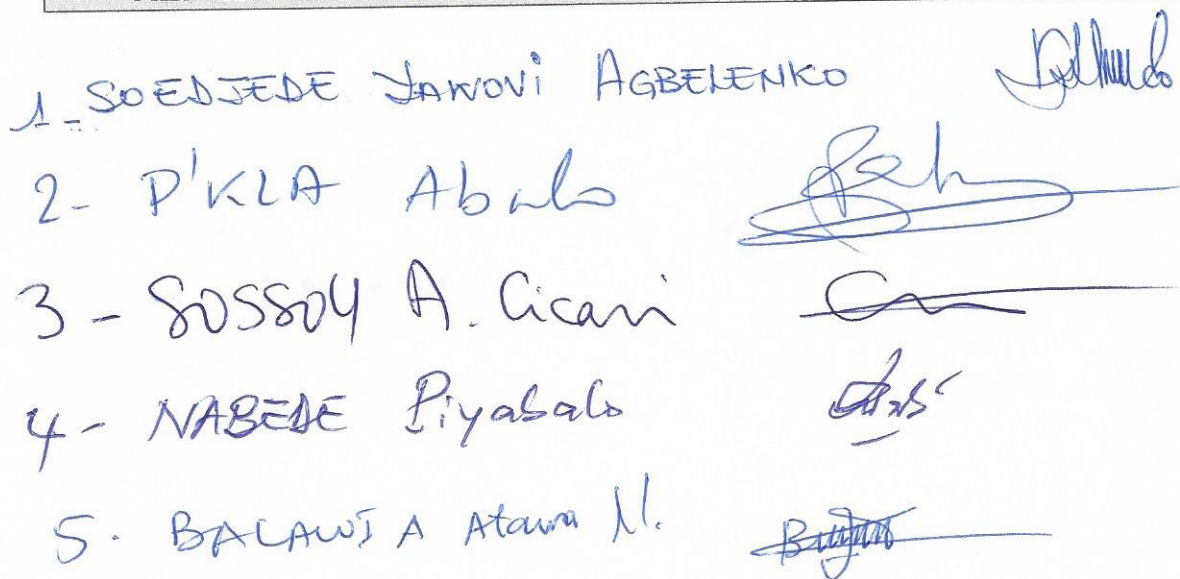 1- SOEDJEDE YAWOVI AGBELENKO
2- P'KLA Abalo
3- SOSSOU A. Cicavi
4- NABEDE Piyabalo
5. BALAWIA Atawa N.